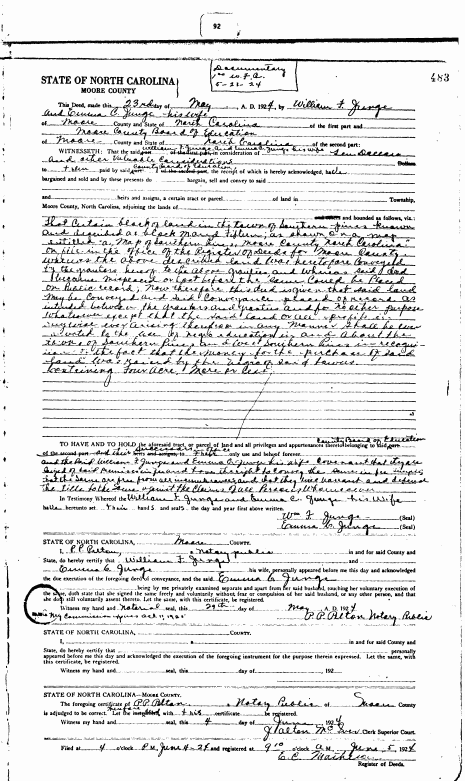 92
Documentary
5-21-24
483
STATE OF NORTH CAROLINA
MOORE COUNTY
This Deed, made this 23rd day of May A. D. 1924, by William F. Junge
and Emma C. Junge his wife
of Moore County and State of North Carolina of the first part and
Moore County Board of Education
of Moore County and State of North Carolina of the second part:
WITNESSETH: That the said William F. Junge and Emma C. Junge his wife in consideration of Ten Dollars
And other Valuable Considerations Dollars
to them paid by said County Board of Education the receipt of which is hereby acknowledged, have
bargained and sold and by these presents do bargain, sell and convey to said
and heirs and assigns, a certain tract or parcel of land in Township,
Moore County, North Carolina, adjoining the lands of
and bounded as follows, viz.:
That Certain block of land in the town of Southern Pines known
and designated as block M and fifteen, as shown on a map
entitled "a Map of Southern Pines, Moore County North Carolina"
on file in the office of the Register of Deeds for Moore County
Whereas the above described land was heretofore Conveyed
by the grantors hereof to the above grantee, and Whereas said deed
became misplaced or lost before the same Could be placed
on Public record, Now therefore this deed is given that said land
May be Conveyed and said Conveyance placed of record as
intended between the grantors and grantee and for no other purpose
Whatsoever except that the said land or use
arising therefrom in any manner Shall be ever
devoted to the use of negro education in and about the
towns of Southern Pines and West Southern Pines in
the fact that the money for the purchase of said
land was raised by the negroes of said towns.
Containing Four Acres, More or less.
TO HAVE AND TO HOLD the aforesaid tract, or parcel of land and all privileges and appurtenances thereto belonging to said County Board of Education
of the second part and their successors only use and behoof forever.
And the said William F. Junge and Emma C. Junge his wife Covenant that they are
seized of said premises in fee and have the right to convey the same in fee simple,
that the same are free from all encumbrances and that they will warrant and defend
the title to the same against the Claims of all Persons Whomsoever
In Testimony Whereof the William F. Junge and Emma C. Junge his Wife
have hereunto set their hands and seals the day and year first above written.
Wm F. Junge (Seal)
Emma C. Junge (Seal)
STATE OF NORTH CAROLINA, Moore COUNTY.
I, P.P. Pelton, a Notary public in and for said County and
State, do hereby certify that William F. Junge and
Emma C. Junge his wife, personally appeared before me this day and acknowledged
the due execution of the foregoing deed of conveyance, and the said Emma C. Junge
being by me privately examined separate and apart from her said husband, touching her voluntary execution of
the same, doth state that she signed the same freely and voluntarily without fear or compulsion of her said husband, or any other person, and that
she doth still voluntarily assent thereto. Let the same, with this certificate, be registered.
Witness my hand and Notarial seal, this 29th day of May A. D. 1924
My Commission expires Oct 11, 1925 P.P. Pelton Notary Public
STATE OF NORTH CAROLINA, COUNTY.
I, in and for said County and
State, do hereby certify that personally
appeared before me this day and acknowledged the execution of the foregoing instrument for the purpose therein expressed. Let the same, with
this certificate, be registered.
Witness my hand and seal, this day of 192
STATE OF NORTH CAROLINA—MOORE COUNTY.
The foregoing certificate of P.P. Pelton, Notary Public of Moore County
is adjudged to be correct. Let the instrument with this certificate be registered.
Witness my hand this 4 day of June 1924
Clerk Superior Court.
Filed at 4 o'clock P. M. June 4-24 and registered at 9 10 o'clock A M. June 5 1924
Register of Deeds.